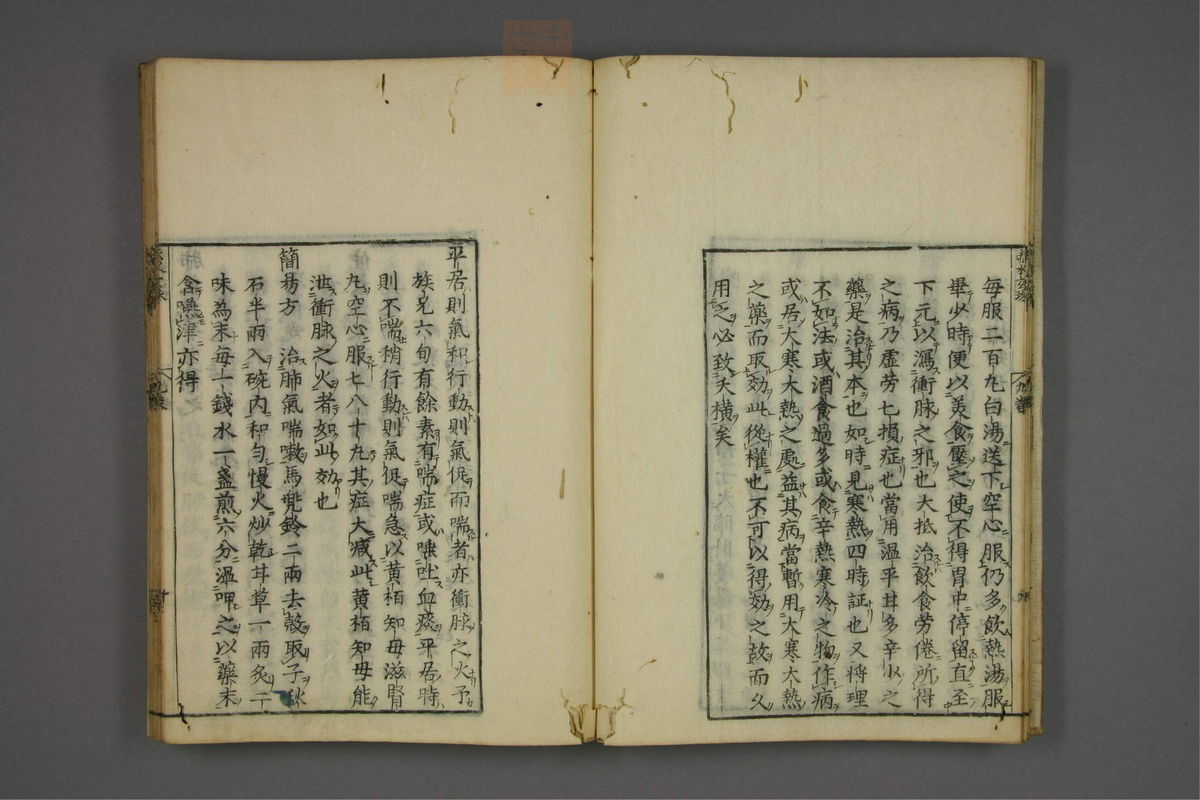 每服二百丸白湯送下空心服仍多飲熱湯服
畢少時便以美食壓之使不得胃中停留直至
下元以瀉衝脉之邪也大抵治飲食劳倦所得
之病乃虛劳七損症也當用温平甘多辛少之
藥是治其本也如時見寒熱四時証也又将理
不如法或酒食過多或食辛熱寒冷之物作病
或居大寒大熱之處益其病當暫用大寒大熱
之藥而取効此從權也不可以得効之故而久
用之必致夭横矣
平居則氣和行動則氣促而喘者亦衝脉之火予
族兄六旬有餘素有喘症或唾吐血痰平居時
則不喘稍行動則氣促喘急以黄栢知母滋腎
丸空心服七八十丸其症大减此黄栢知母能
泄衝脉之火者如此効也
簡易方 治肺氣喘嗽馬兜鈴二兩去殻取子秋
石半兩入碗内和匀慢火炒乾甘草一兩炙二
味為末每一錢水一盞煎六分温呷之以藥末
含嚥津亦得